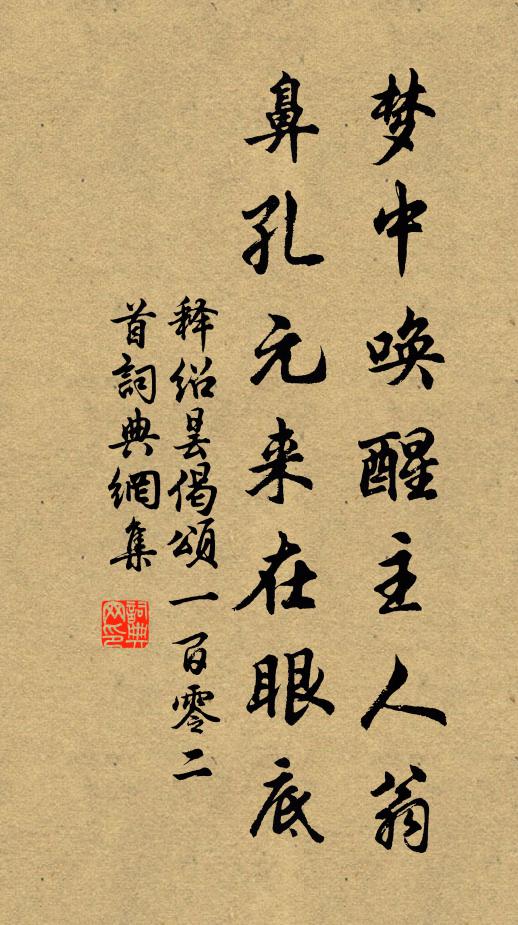 梦中唤醒主人翁
鼻孔元来在眼底
释绍昙偈颂一百零二
首詞典網集
詞典网印